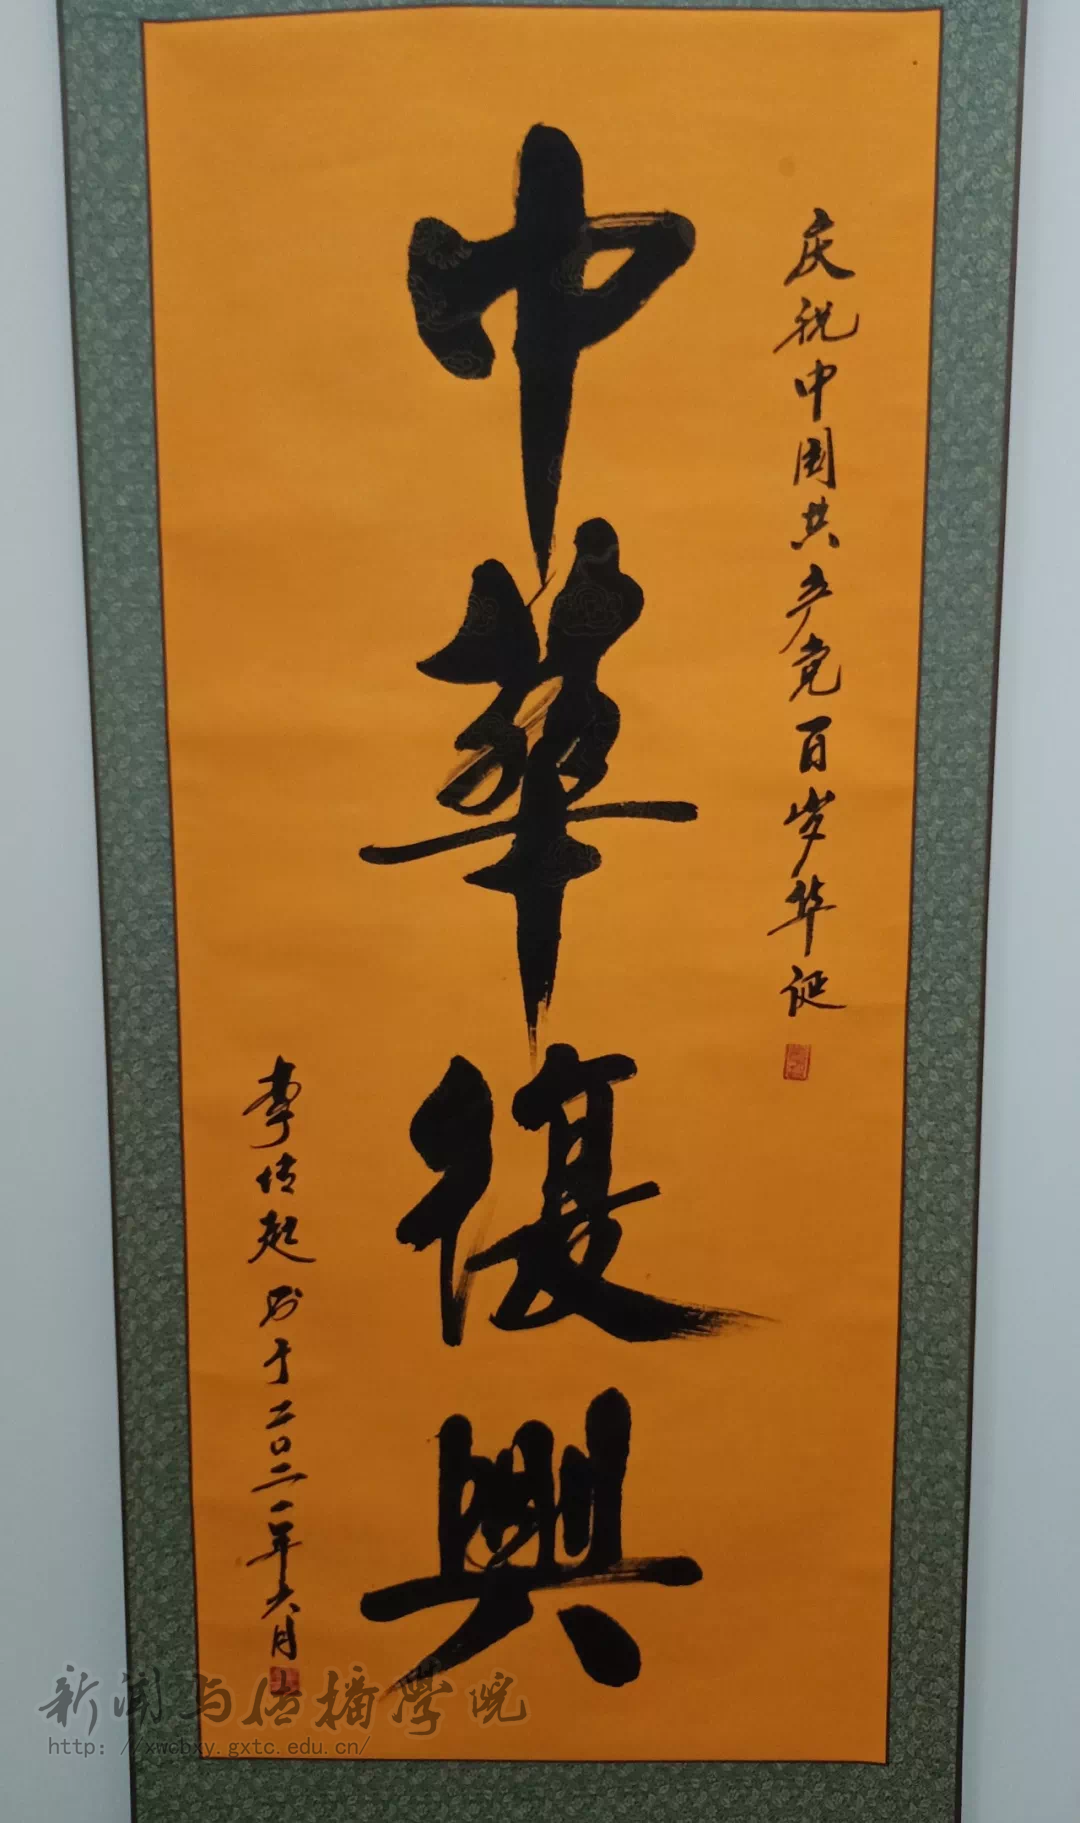 庆祝中国共产党百岁华诞
中華復興
李传起书于二〇二一年六月
新闻与传播学院
http: //xwcbxy.gxtc.edu.cn/